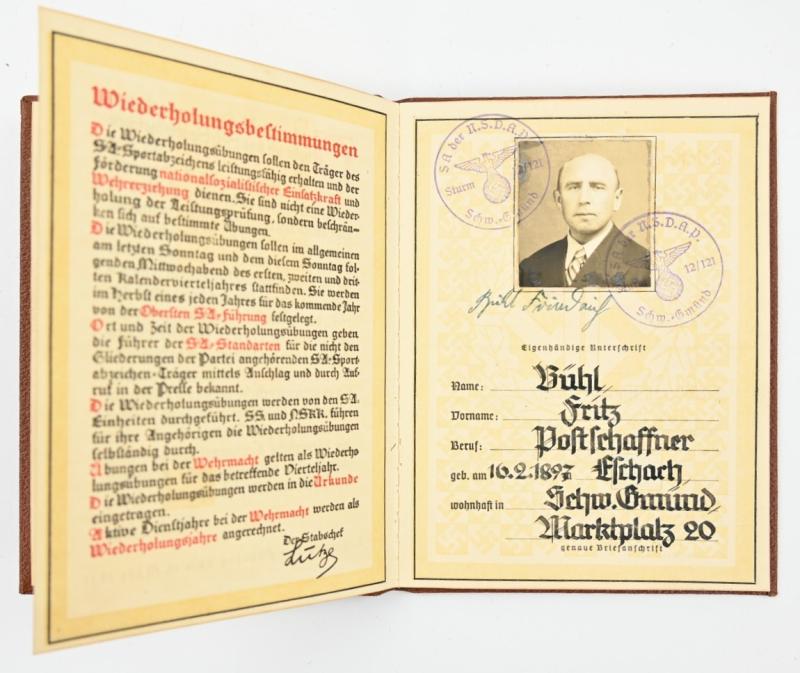 Wiederholungsbestimmungen
Die Wiederholungsübungen sollen den Träger des
SA-Sportabzeichens leistungsfähig erhalten und der
Förderung nationalsozialistischer Einsatzkraft und
Wehrerziehung dienen. Sie sind nicht eine Wieder-
holung der Leistungsprüfung, sondern beschrän-
ken sich auf bestimmte Übungen.
Die Wiederholungsübungen sollen im allgemeinen
am letzten Sonntag und dem diesem Sonntag fol-
genden Mittwochabend des ersten, zweiten und drit-
ten Kalendervierteljahres stattfinden. Sie werden
im Herbst eines jeden Jahres für das kommende Jahr
von der Obersten SA-Führung festgelegt.
Ort und Zeit der Wiederholungsübungen geben
die Führer der SA-Standarten für die nicht den
Gliederungen der Partei angehörenden SA-Sport-
abzeichen-Träger mittels Anschlag und durch Auf-
ruf in der Presse bekannt.
Die Wiederholungsübungen werden von den SA
Einheiten durchgeführt. SS und NSKK führen
für ihre Angehörigen die Wiederholungsübungen
selbständig durch.
Übungen bei der Wehrmacht gelten als Wiederho
lungsübungen für das betreffende Vierteljahr.
Die Wiederholungsübungen werden in die Urkunde
eingetragen.
Aktive Dienstjahre bei der Wehrmacht werden als
Wiederholungsjahre angerechnet.
Der Stabschef
Lutze
SA der N.S.D.A.P.
Sturm 12/121
Schw.-Gmünd
SA der N.S.D.A.P.
12/121
Schw.-Gmünd
Bühl
Eigenhändige Unterschrift
Name: Bühl
Vorname: Fritz
Beruf: Postschaffner
geb. am 16.2.1897 Eschach
wohnhaft in Schw. Gmünd
Marktplatz 20
genaue Briefanschrift